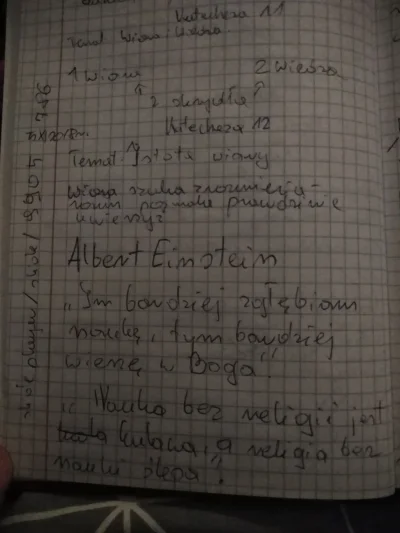 Katecheza 11
Temat Wiara i wiedza
1 Wiara 2 wiedza
2 skrzydła
Katecheza 12
Temat: Istota wiary
Wiara szuka zrozumienia -
rozum pozwala prawdziwie
uwierzyć
Albert Einstein
„Im bardziej zgłębiam
naukę, tym bardziej
wierzę w Boga".
„Nauka bez religii jest
kulawa, a religia bez
nauki ślepa".